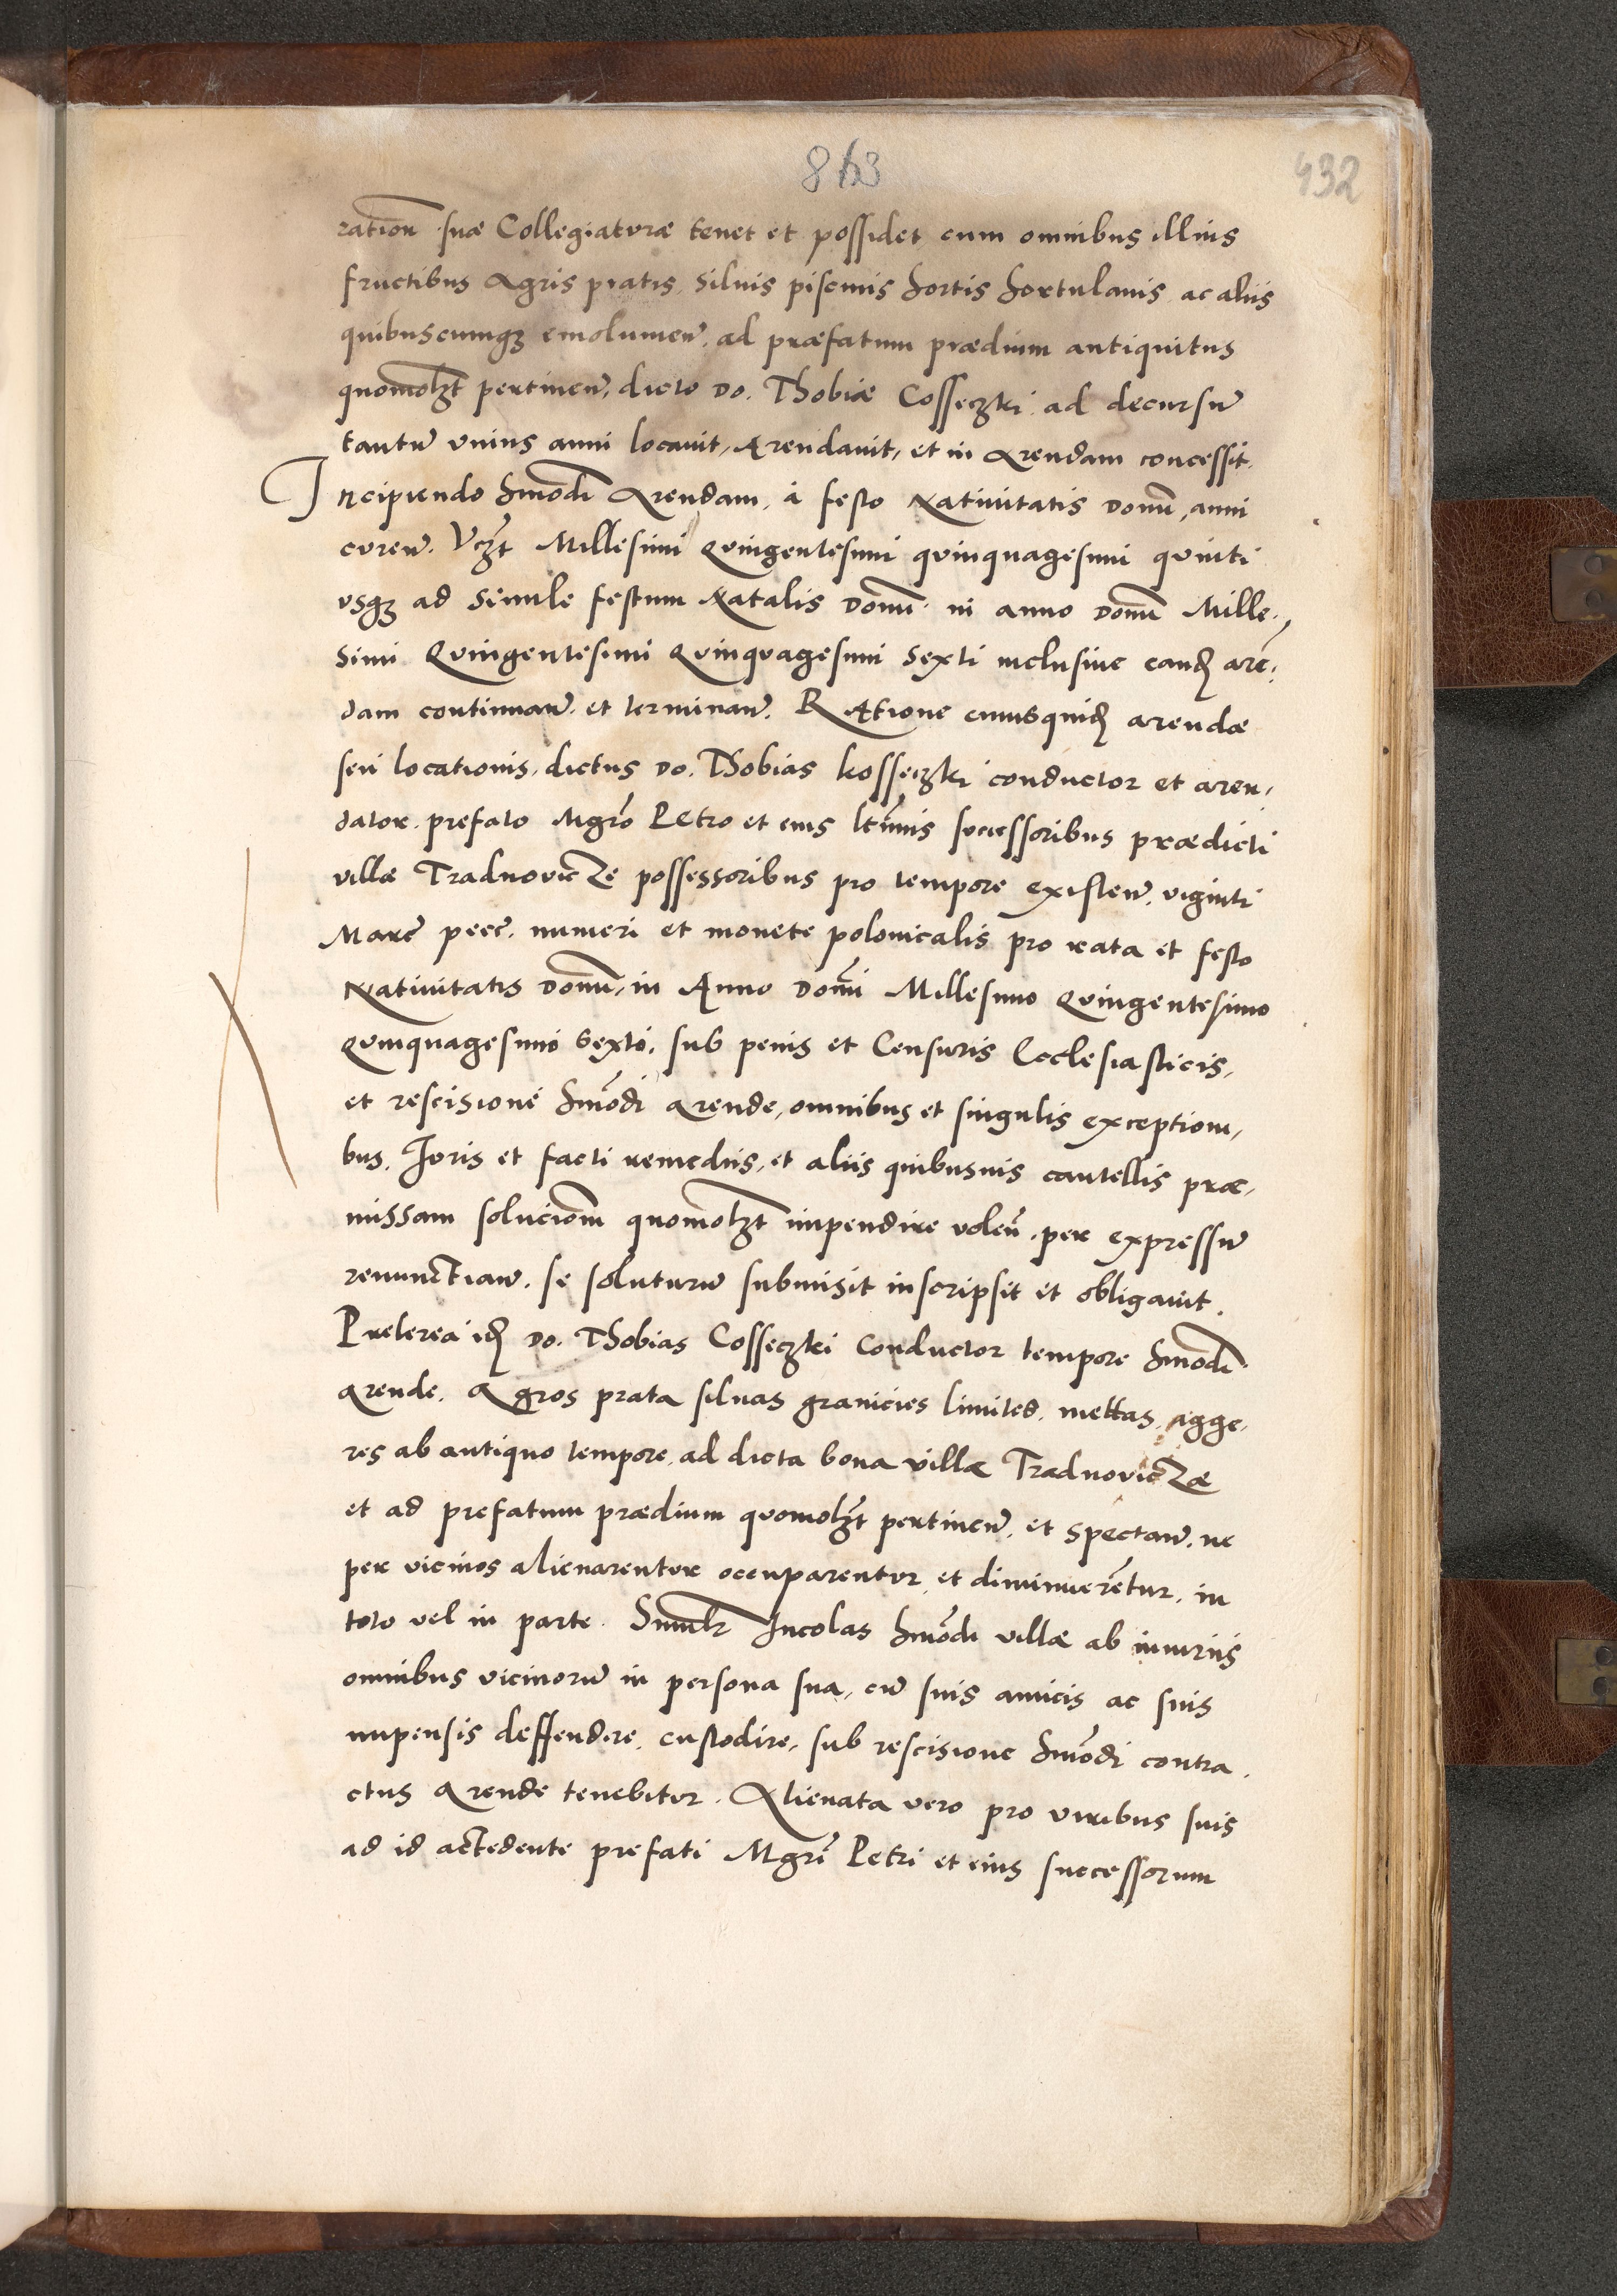 863
432
ration̄ suæ Collegiaturæ tenet et possidet cum omnibus illius
fructibus Agris pratis, Siluis piscinis hortis hortulanis ac aliis
quibuscumqʒ emolumen̄, ad præfatum prædium antiquitus
quomolʒt pertinen̄, dicto Do. Thobiæ Cosseczki ad decursū
tantū vnius anni locauit, Arendauit, et in Arendam concessit.
Incipiendo hmōdi Arendam, à festo Natiuitatis Domī, anni
curen̄. Vczt Millesimi Quingentesimi quinquagesimi quinti
vsqʒ ad Simile festum Natalis Domī in anno Domī Mille,
Simi Quingentesimi Quinquagesimi Sexti inclusiue eandʒ arē,
dam continuan̄. et terminan̄. RAtione cuiusquidʒ arendæ
seu locationis, dictus Do. Thobias kosseczki conductor et aren,
dator. prefato Mgrō PEtro et eius ltīmis successoribus prædicti
villæ Tradnovicze possessoribus pro tempore existen̄. viginti
Marc̄ pecc. numeri et monete polonicalis pro rata et festo
Natiuitatis Domī, in Anno Domī Millesimo Quingentesimo
Quinquagesimo Sexto, sub penis et Censuris Ecclesiasticis,
et rescisione hmōdi Arende, omnibus et singulis exceptioni,
bus, Joris et facti remediis, et aliis quibusuis cautellis præ,
missam soluciom̄ quomolʒt impendire volen̄. per expressū
renunctian̄. se soluturū submisit inscripsit et obligauit.
Preterea idʒ Do. Thobias Cosseczki Conductor tempore hmōdi
Arende. Agros prata siluas granicies limites. mettas, agge,
res ab antiquo tempore, ad dicta bona villæ Tradnoviczæ
et ad prefatum prædium quomolʒt pertinen̄. et spectan̄. ne
per vicinos alienarentur occuparentur, et diminuerētur, in
toto vel in parte. Simlr Incolas hmōdi villæ ab iniuriis
omnibus vicinorū in persona sua, cū suis amicis ac suis
impensis deffendere, custodire, sub rescisione hmōdi contra,
ctus Arende tenebitur. Alienata vero pro viribus suis
ad id actedente prefati Mgrī Petri et eius successorum